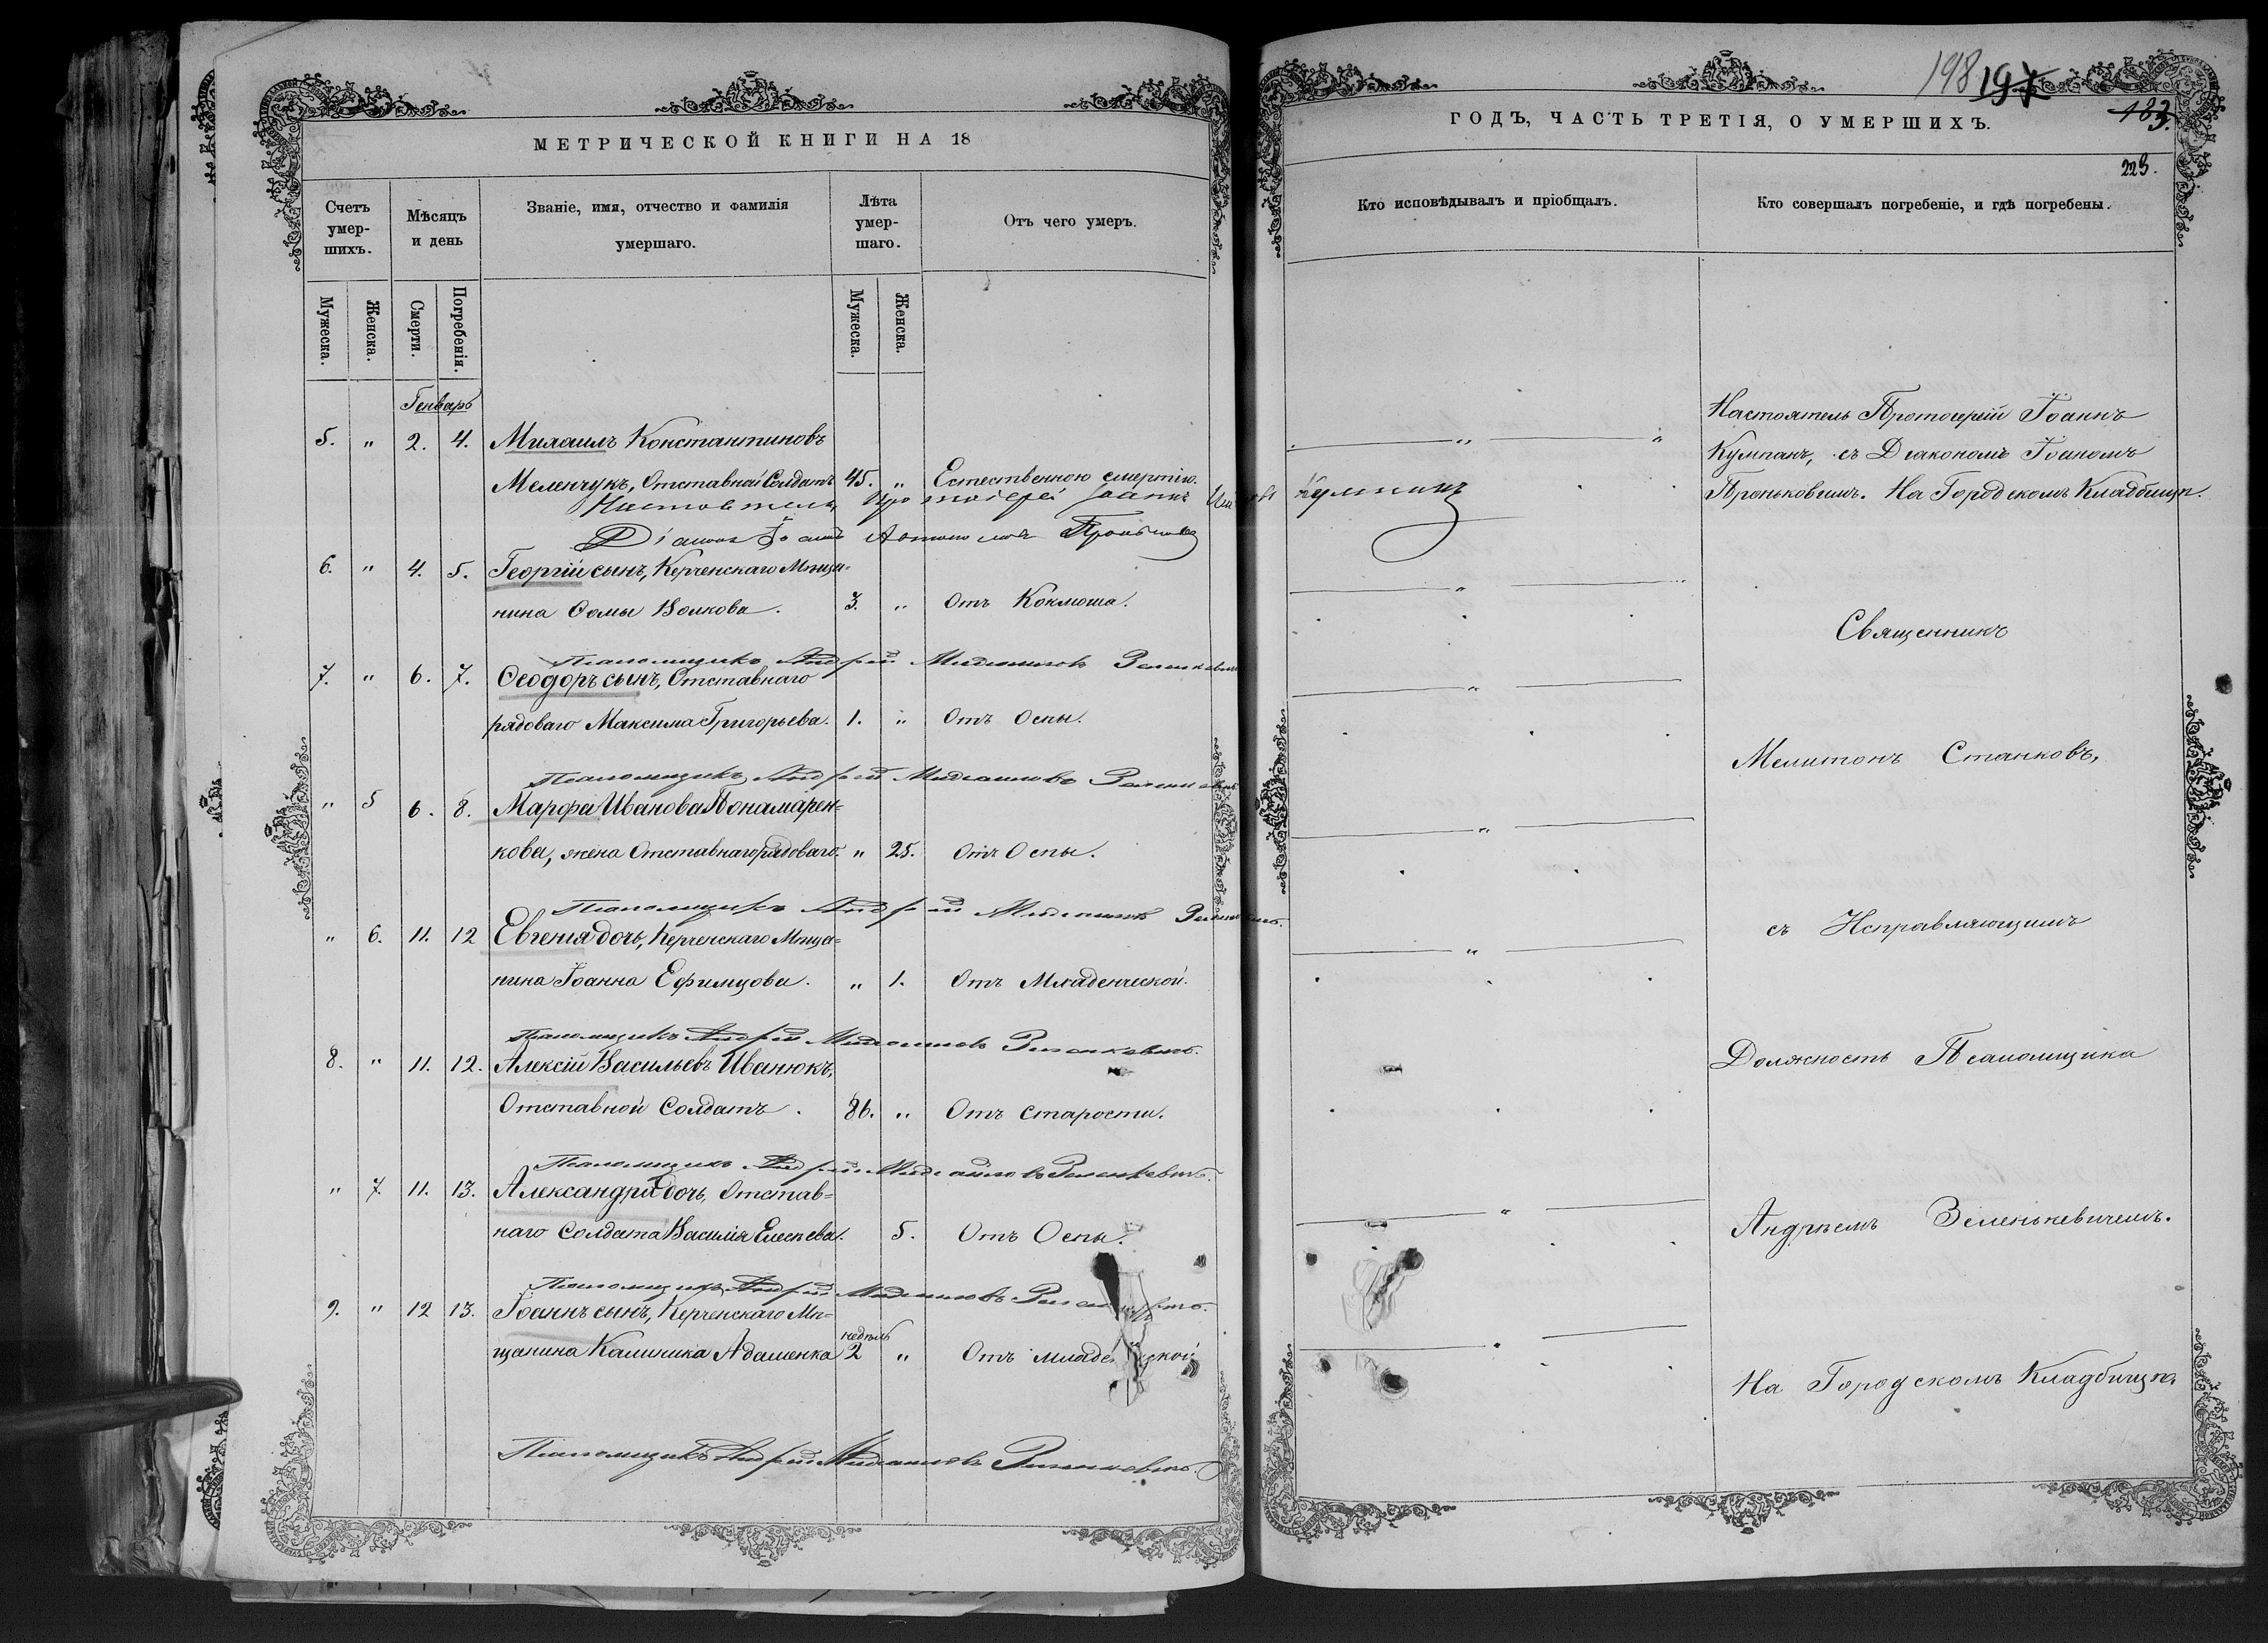 МЕТРИЧЕСКОЙ КНИГИ НА 18
Счетъ умер-шихъ.
Мѣсяцъ и день
Званіе, имя, отчество и фамилія умершаго.
Лѣта умер-шаго.
Отъ чего умеръ.
Мужеска.
Женска.
Смерти.
Погребенія.
Мужеска.
Женска.
Генварь
5. " 2. 4. Михаилъ Константиновъ
Меленчукъ, Отставной Солдатъ 45. " Естественною смертію.
Настоятель Протоіерей Іоаннъ Кумпанъ
Діаконъ Іоаннъ
6. " 4. 5. Георгій сынъ, Керченскаго Мѣща=
нина Ѳомы Волкова. 3. " Отъ Коклюша.
Псаломщикъ Андрей Михаиловъ Зеленкевичъ
7. " 6. 7. Ѳеодоръ сынъ, Отставнаго
рядоваго Максима Григорьева. 1. " Отъ Оспы.
Псаломщикъ Андрей Михаиловъ Зеленкевичъ
" 5 6. 8. Марфа Иванова Понамарен=
кова, жена Отставнаго рядоваго. " 25. Отъ Оспы.
Псаломщикъ Андрей Михаиловъ Зеленкевичъ.
" 6. 11. 12 Евгенія дочь, Керченскаго Мѣща=
нина Іоанна Ефимцова. " 1. Отъ Младенческой.
Псаломщикъ Андрей Михаиловъ Зеленкевичъ.
8. " 11. 12. Алексій Васильевъ Иванюкъ,
Отставной Солдатъ. 86. " Отъ Старости.
Псаломщикъ Андрей Михаиловъ Зеленкевичъ.
" 7. 11. 13. Александра дочь, Отстав=
наго Солдата Василія 5. Отъ Оспы.
Псаломщикъ Андрей Михаиловъ Зеленкевичъ.
9. " 12 13. Іоаннъ сынъ, Керченскаго Мѣ=
недѣль
щанина Калиника Адаменка 2 " Отъ младенческой
Псаломщикъ Андрей Михаиловъ Зеленкевичъ.
198 197
183.
ГОДЪ, ЧАСТЬ ТРЕТІЯ, О УМЕРШИХЪ.
223.
Кто исповѣдывалъ и пріобщалъ.
Кто совершалъ погребеніе, и гдѣ погребены.
Настоятель Протоіерей Іоаннъ
Кумпанъ, съ Діакономъ Іоанномъ
Проньковымъ. На Городскомъ Кладбищѣ.
Священникъ
Мелитонъ Станковъ,
съ Исправляющимъ
Должность Псаломщика
Андреемъ Зеленькевичемъ.
На Городскомъ Кладбищѣ.